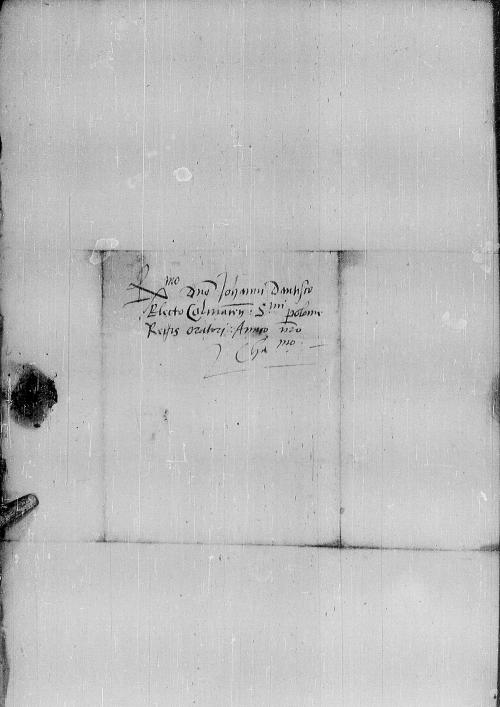 Rmo dno Johanni Dantisco
Electo Culmaren : Smi polonie
Regis oratori : Amico nro
Chmo